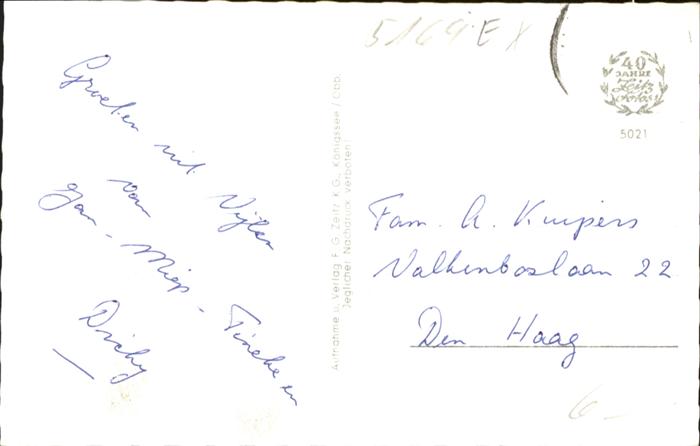 Groeten uit Vijlen
van
Jan - Miep - Tineke en
Dicky
Aufnahme u. Verlag F. G. Zeitz K.G., Königssee / Obb.
Jeglicher Nachdruck verboten!
5169 EX
40
JAHRE
Zeitz
5021
Fam. A. Kuipers
Valkenboslaan 22
Den Haag
6-